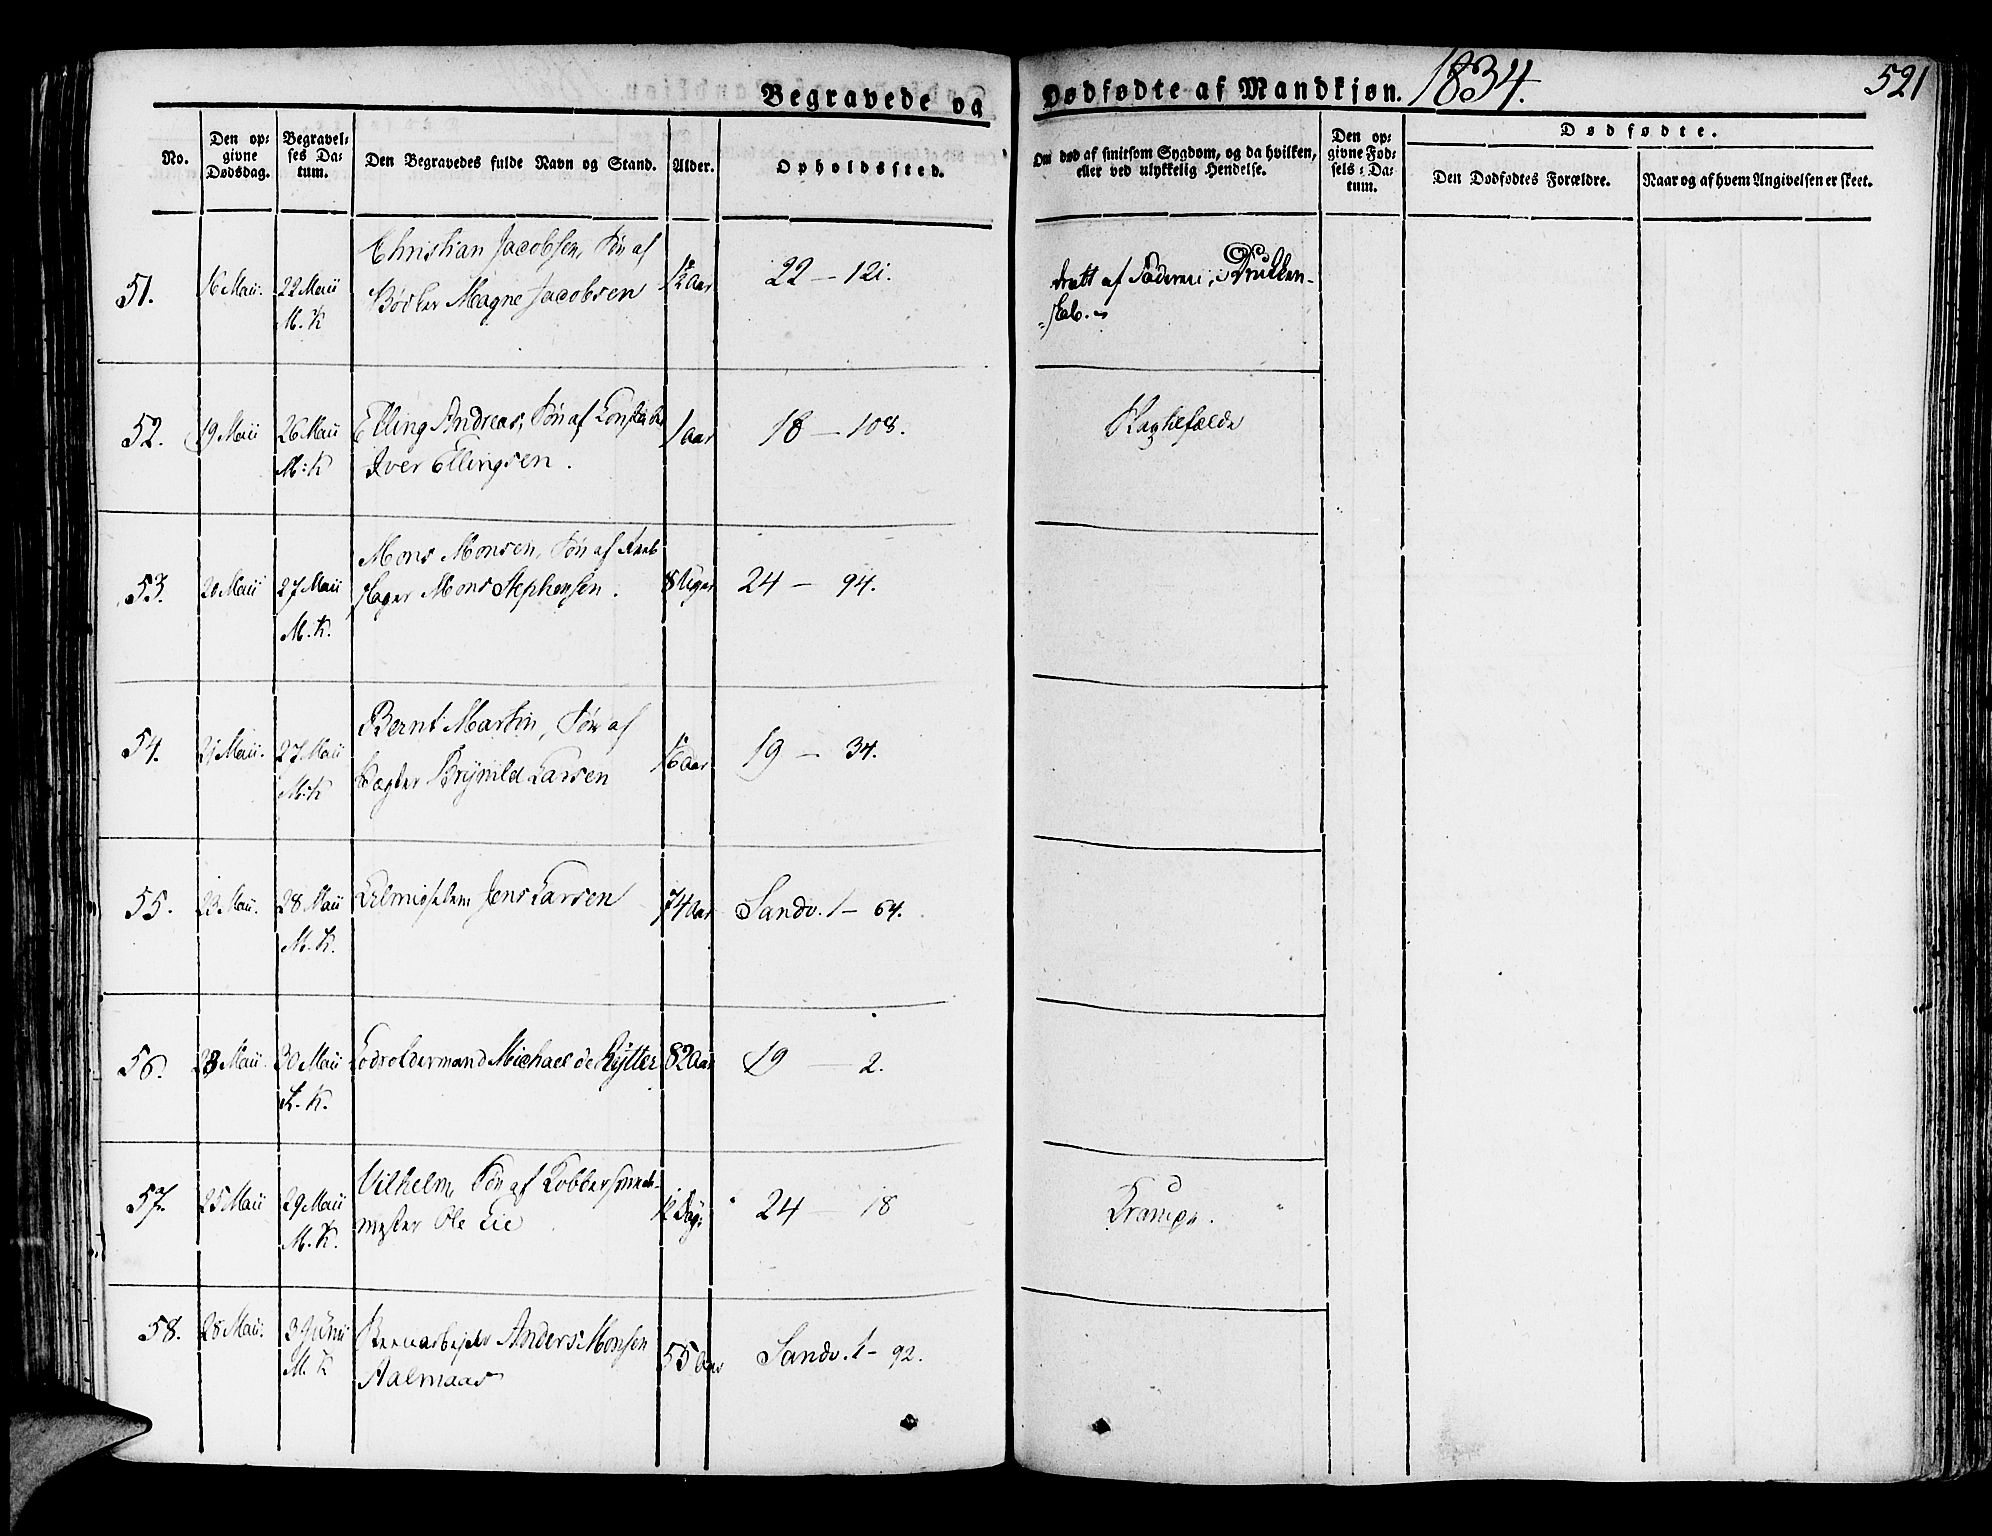 Begravede og Dødfødte af Mandkjøn. 1834. 521
No.
Den opgivne Dødsdag.
Begravelses Datum.
Den Begravedes fulde Navn og Stand.
Alder.
Opholdssted.
Om død af smitsom Sygdom, og da hvilken, eller ved ulykkelig Hendelse.
Den opgivne Fødsels-Datum.
Dødfødte.
Den Dødfødtes Forældre.
Naar og af hvem Angivelsen er skeet.
51. 16 Maii. 22 Maii Christian Jacobsen, Søn af 22 — 121.
M. K Magne Jacobsen
dræbt af Faderen i Drukken-
skab.
52. 19 Maii 26 Maii Elling Andreas, Søn af 1 aar 18 — 108.
M: K Iver Ellingsen.
53. 20 Maii 27 Maii Mons Monsen, Søn af 8 Uger 24 — 94.
M. K. Mons Stephensen.
54. 21 Maii. 27 Maii Bernt Martin, Søn af 19 — 34.
M: K Brynild Larsen
55. 23 Maii. 28 Maii Jens Larsen 74 Aar Sandv. 1 — 64.
M. K.
56. 23 Maii. 30 Maii Lodsoldermand Michael de Rÿtter 82 Aar 19 — 2.
K.
57. 25 Maii 29 Maii Vilhelm, Søn af 12 Dage 24 — 18 Krampe.
M. K. mester Ole Lie
58. 28 Maii. 3 Junii Anders Monsen 55 Aar Sandv. 1 — 92.
M. K Aalmaas